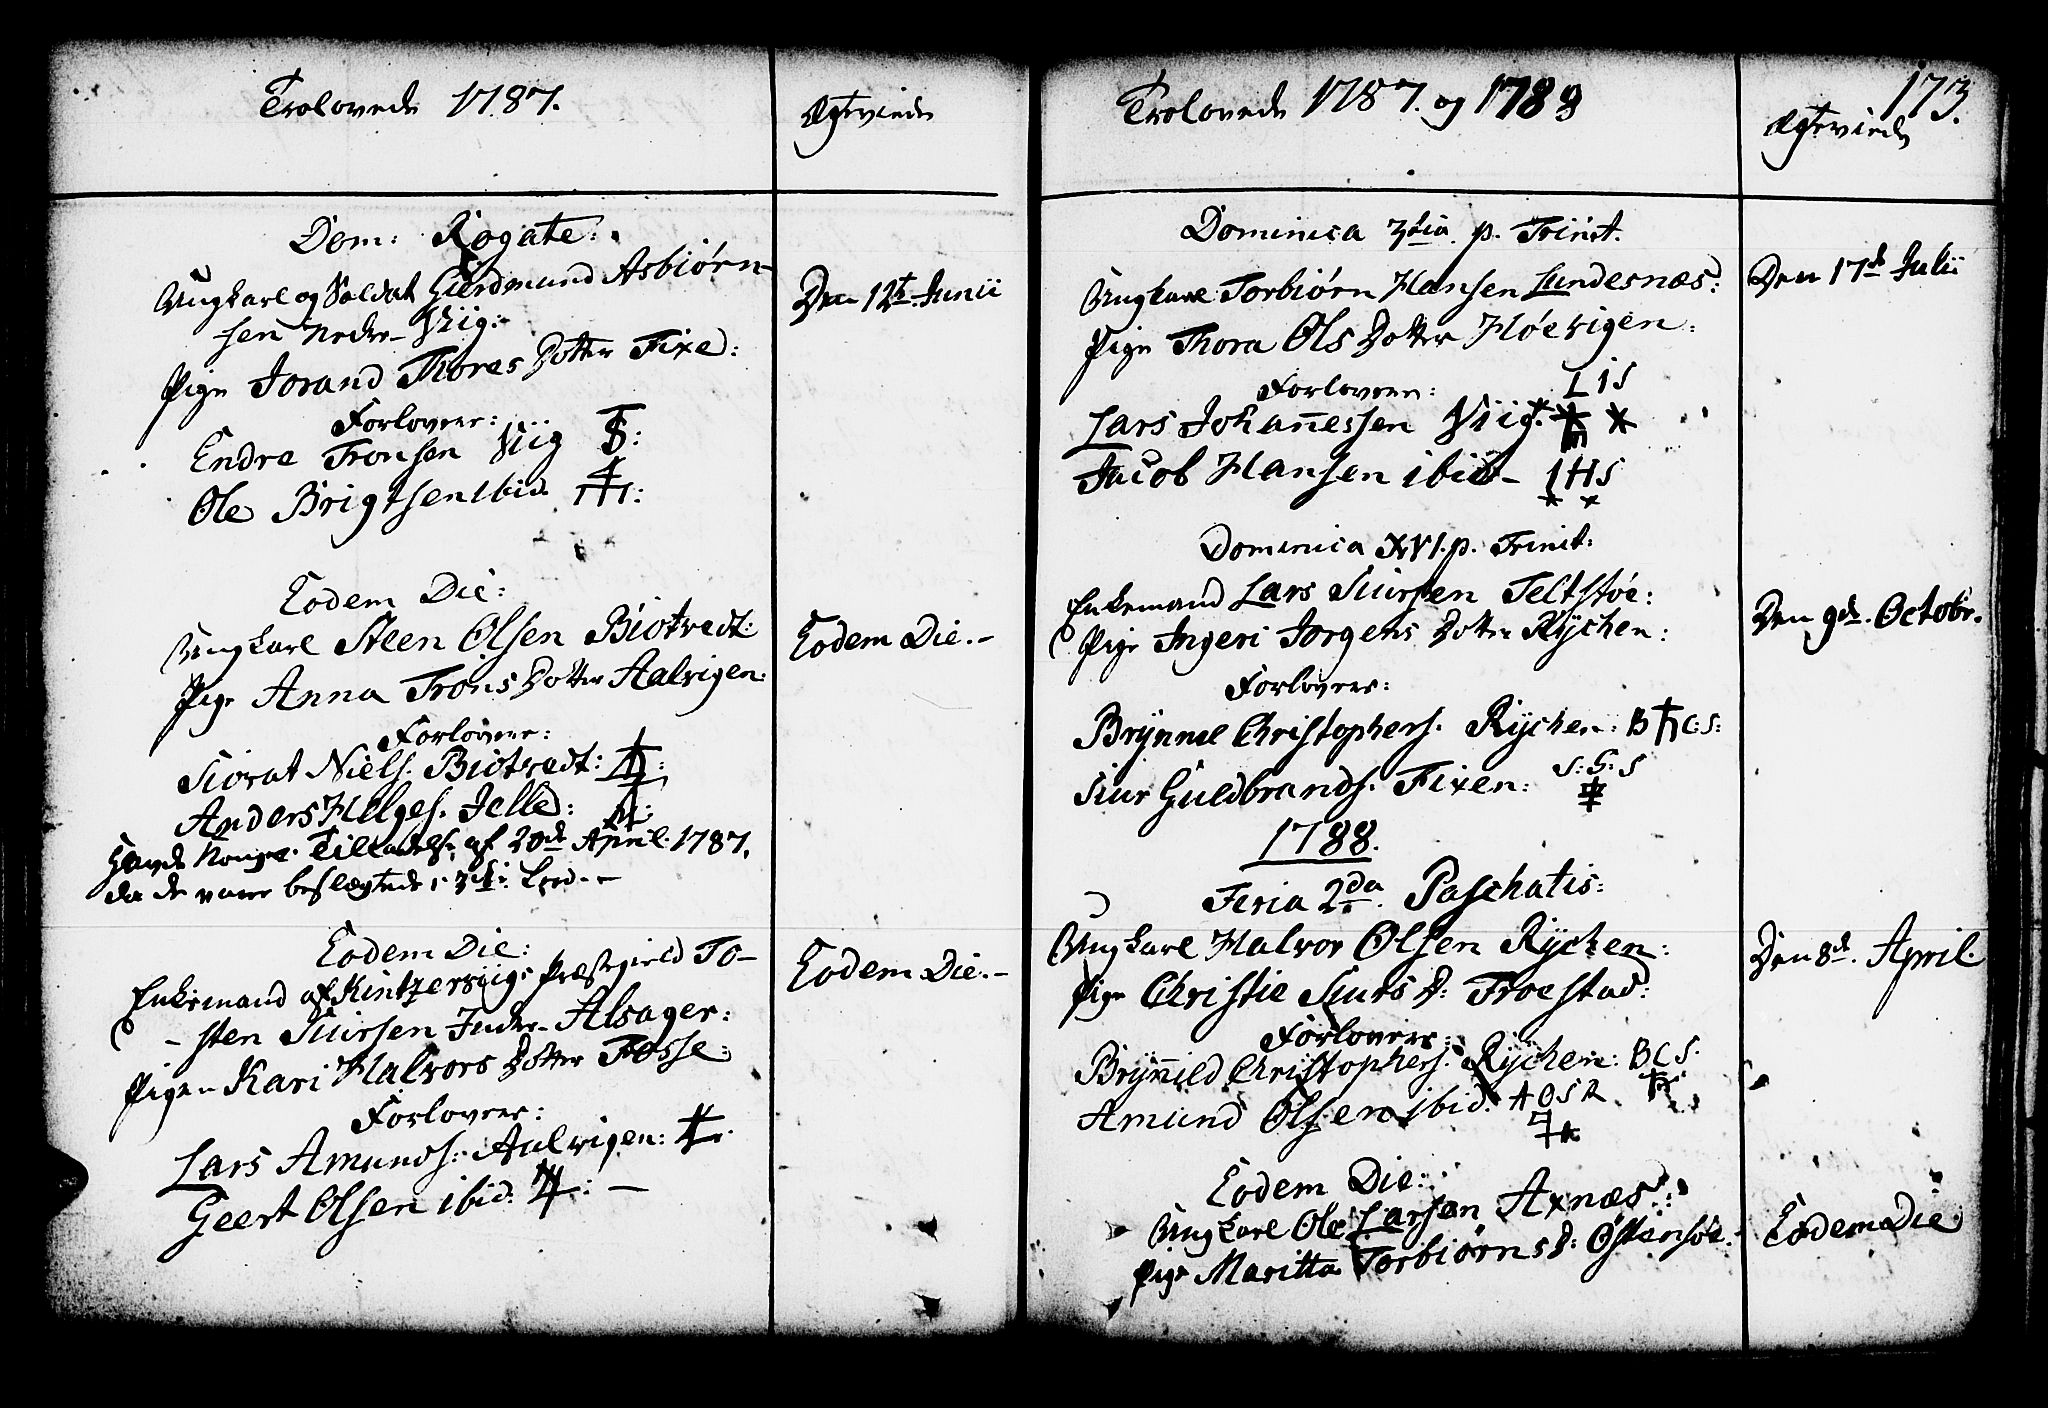 Trolovede 1787.
Ægteviede
Dom: Rogate:
Ungkarl og Soldat Gierdmund Asbiørn-
sen Nedre- Viig:
Den 12te Junii
Pige Jorand Thores Dotter Fixe:
Forlovere:
Endre Tronsen Viig
Ole Brigtsen ibid.
Eodem Die:
Ungkarl Steen Olsen Biotvedt:
Eodem Die.-
Pige Anna Trons Dotter Aalvigen:
Forlovere:
Siovat Niels. Biotvedt:
Anders Helges. Jelle:
Havde Konge. Tilladelse af 20de April. 1787.
da de vare beslægtede i 3die Leed.-
Eodem Die:
Enkemand af Kintzerviigs Præstegield To-
-sten Siursen Indre- Alsager:
Eodem Die.-
Pigen Kari Halvors Dotter Fosse:
Forlovere:
Lars Amunds: Aalvigen:
Geert Olsen ibid: -
Trolovede 1787. og 1788
Ægteviede
173.
Dominica 3tia p. Trinit.
Ungkarl Torbiørn Hansen Lundesnæs:
Den 17de Julii
Pige Thora Ols Dotter Høevigen:
Forlovere: L I S
Lars Johannessen Viig:
Jacob Hansen ibid- I H S
Dominica XVI. p. Trinit:
Enkemand Lars Siursen Teltstøe:
Den 9de. Octobr.
Pige Ingeri Jorgens Dotter Rychen:
Forlovere:
Brynnel Christophers. Rychen: B C: S:
Siur Guldbrands. Fixen: S: G: S
1788.
Feria 2da. Paschatis:
Ungkarl Halvor Olsen Rychen:
Den 8de. April.
Pige Christie Siurs D: Troestad:
Forlovere:
Brynnild Christophers. Rychen: B C S.
Amund Olsen ibid: A O S R
Eodem Die:
Ungkarl Ole Larsen Axnæs:
Eodem Die.
Pige Maritta Torbiørns D: Østensøe: